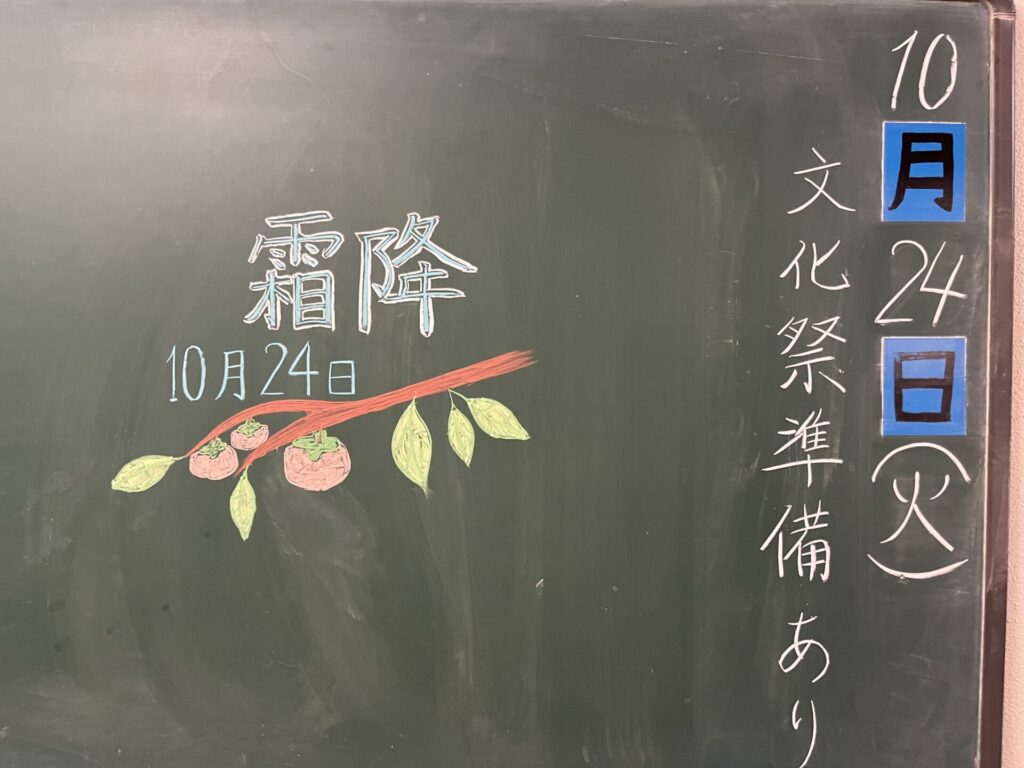 10月24日(火)
文化祭準備あり
霜降
10月24日